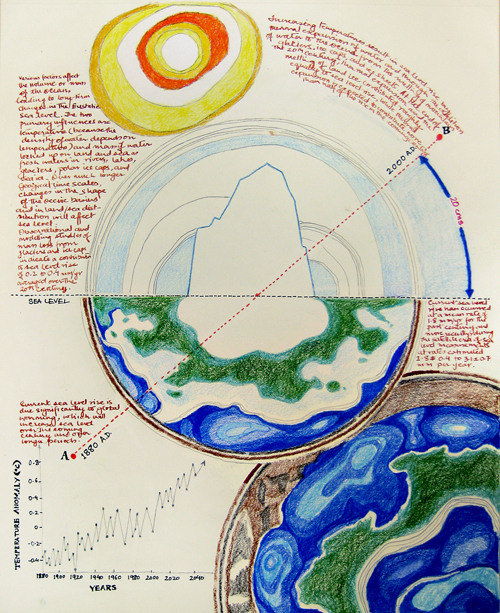 Various factors affect
the volume or mass
of the ocean,
leading to long-term
changes in the Eustatic
sea level. The two
primary influences are
temperature (because the
density of water depends on
temperature) and mass of water
locked up on land and sea as
fresh water in rivers, lakes,
glaciers, polar ice caps, and
sea ice. Over much longer
geological time scales,
changes in the shape
of the oceanic basins
and in land/sea dist-
ribution will affect
sea level.
Observational and
modelling studies of
mass loss from
glaciers and ice caps
indicate a contribution
to sea level rise
of 0.2 to 0.4 mm/yr
averaged over the
20th century.
Increasing temperatures result in sea level rise
thermal expansion of water and
of water to the oceans from
glaciers, ice caps and
the 20th century
B
2000 A.D.
20 cms
SEA LEVEL
Current sea level
rise has occurred
at a mean rate of
1.8 mm/yr for the
past century and
more recently during
the satellite era of sea
level measurements
at rates estimated
2.8±0.4 to 3.1±0.7
mm per year.
Current sea level rise is
due significantly to global
warming, which will
increase sea level
over the coming
century and over
longer periods.
A
1880 A.D.
TEMPERATURE ANOMALY (°C)
0.8
0.4
0.2
0
-0.2
-0.4
1880 1900 1920 1940 1960 1980 2000 2020 2040
YEARS